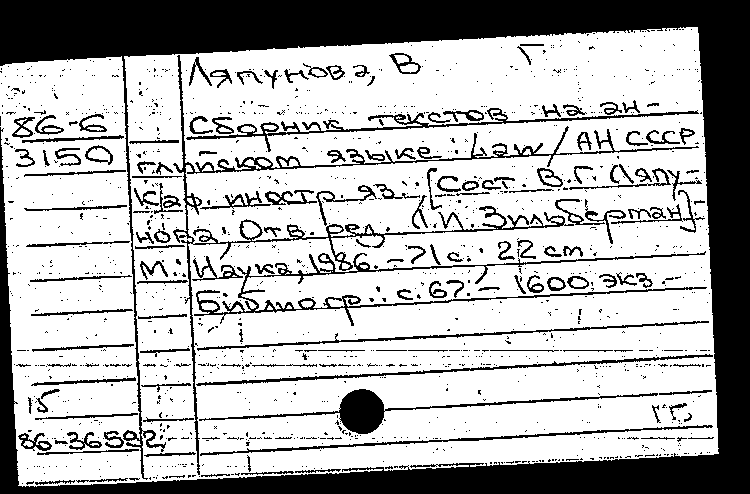 Ляпунова, В Г
86-6 Сборник текстов на ан-
3150 глийском языке : Law / АН СССР
Каф. иностр. яз. ; [Сост. В.Г. Ляпу-
нова; Отв. ред. Л.И. Зильберман]
М.: Наука, 1986. – 71 с. ; 22 cm.
Библиогр.: с. 67. – 1600 экз. –
15
86-36592